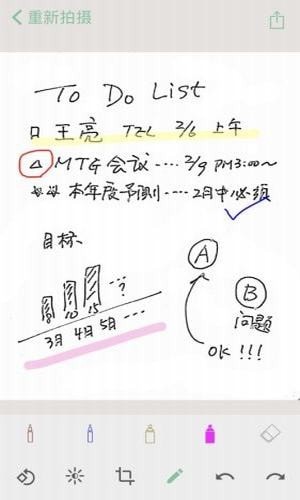 重新拍摄
To Do List
□ 王亮 TEL 2/6 上午
△ MTG 会议 ···· 2/9 PM3:00~
本年度予则 ···· 2月中必须
目标
A
8 10 15 ··· ?
B
问题
3月 4月 5月 ···
OK !!!